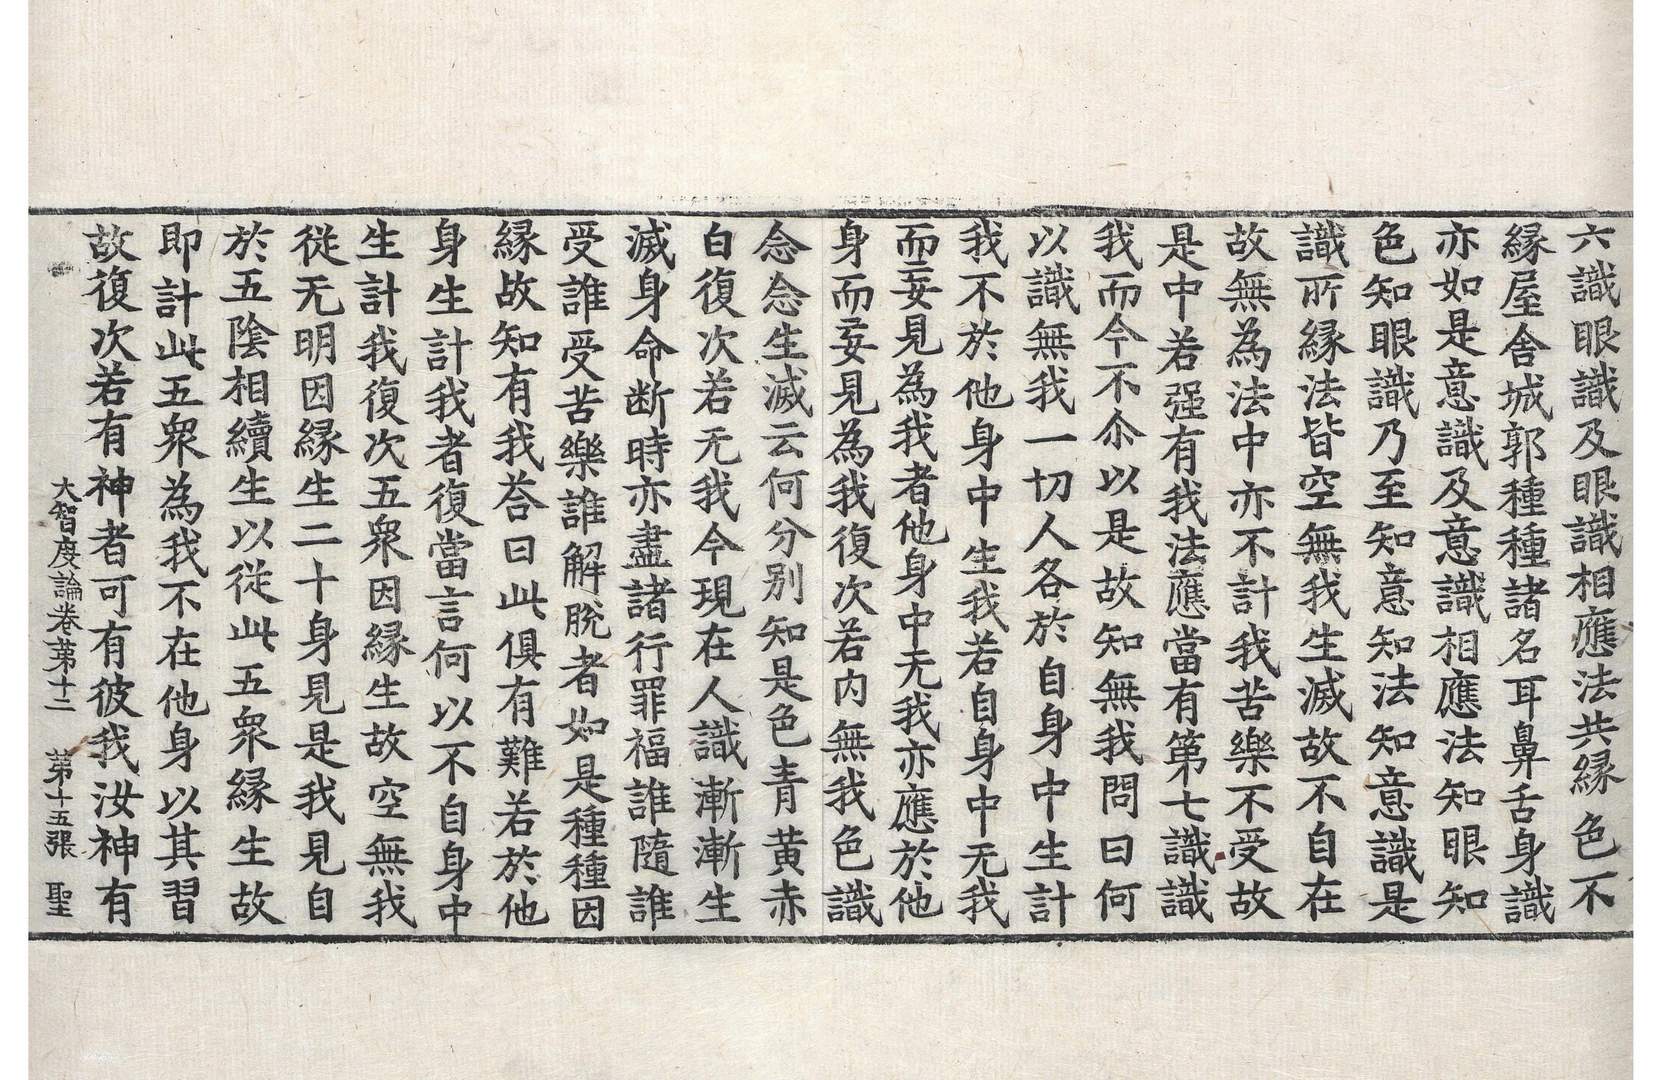 六識眼識及眼識相應法共縁色不
縁屋舎城郭種種諸名耳鼻舌身識
亦如是意識及意識相應法知眼知
色知眼識乃至知意知法知意識是
識所縁法皆空無我生滅故不自在
故無為法中亦不計我苦樂不受故
是中若强有我法應當有第七識識
我而今不尒以是故知無我問曰何
以識無我一切人各於自身中生計
我不於他身中生我若自身中无我
而妄見為我者他身中无我亦應於他
身而妄見為我復次若内無我色識
念念生滅云何分别知是色青黄赤
白復次若无我今現在人識漸漸生
滅身命断時亦盡諸行罪福誰隨誰
受誰受苦樂誰解脫者如是種種因
縁故知有我荅曰此俱有難若於他
身生計我者復當言何以不自身中
生計我復次五衆因縁生故空無我
從无明因縁生二十身見是我見自
於五陰相續生以從此五衆縁生故
即計此五衆為我不在他身以其習
故復次若有神者可有彼我汝神有
大智度論卷第十二　第十五張　聖